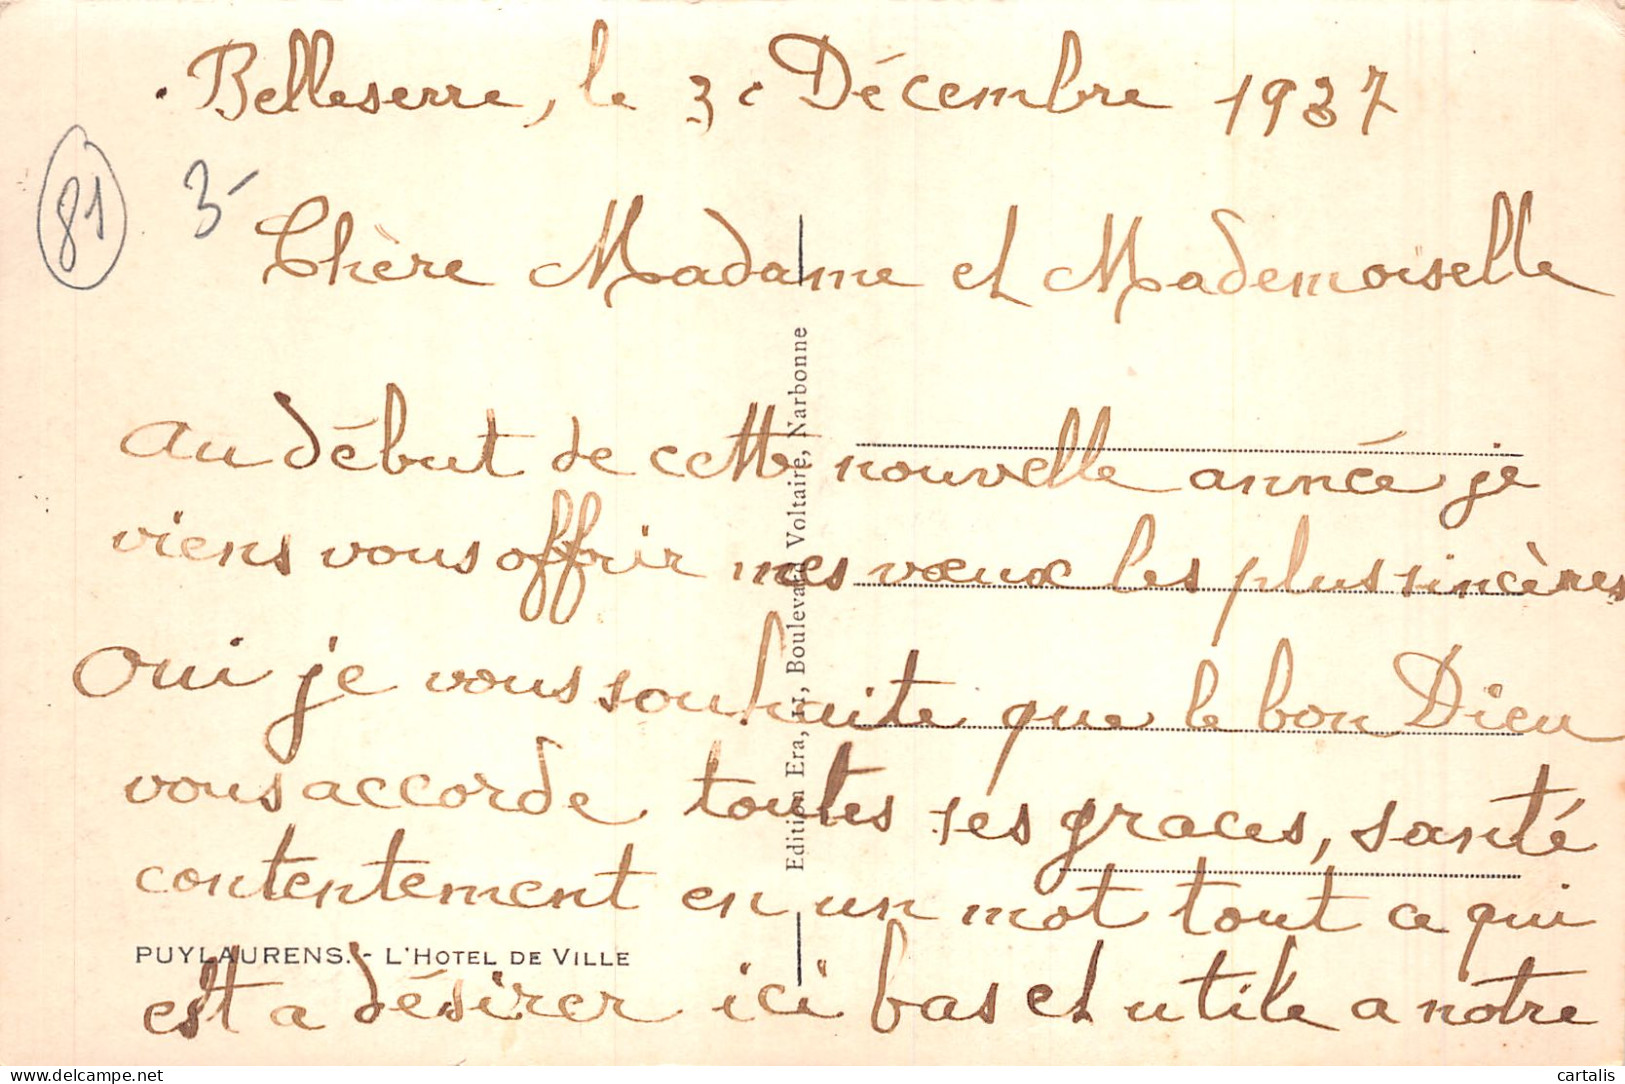 Belleserre, le 3c Décembre 1937
81
3-
Chère Madame et Mademoiselle
Au début de cette nouvelle année je
viens vous offrir mes vœux les plus sincères
Oui je vous souhaite que le bon Dieu
vous accorde toutes ses graces, santé
contentement en un mot tout ce qui
est a désirer ici bas et utile a notre
PUYLAURENS. - L'HOTEL DE VILLE
Edition Era, 11, Boulevard Voltaire, Narbonne
cartalis